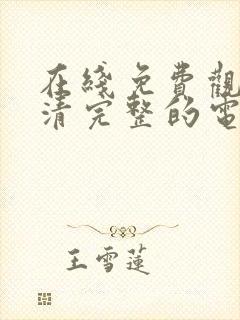 在綫免費觀
清完整的電
王雪蓮